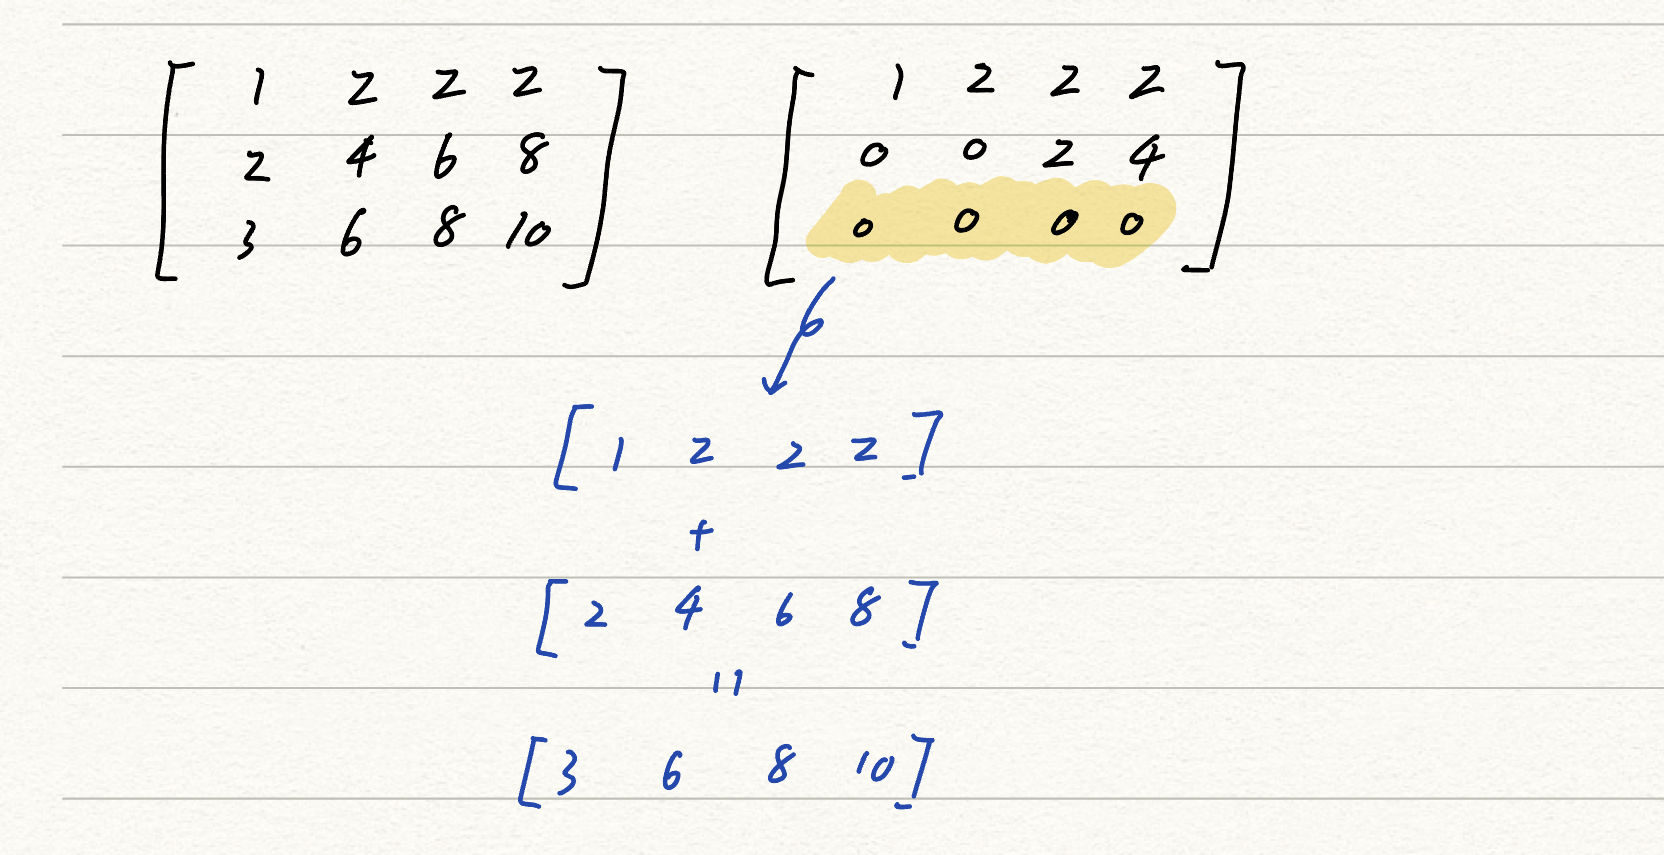 [ 1 2 2 2
2 4 6 8
3 6 8 10 ]
[ 1 2 2 2
0 0 2 4
0 0 0 0 ]
[ 1 2 2 2 ]
+
[ 2 4 6 8 ]
=
[ 3 6 8 10 ]